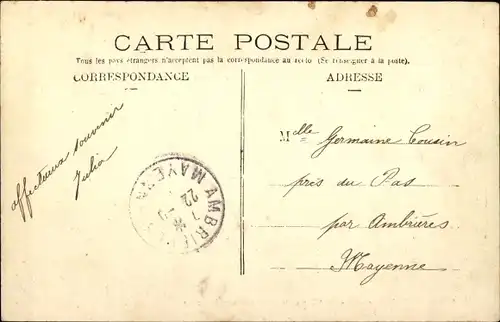 CARTE POSTALE
Tous les pays étrangers n'acceptent pas la correspondance au recto (Se renseigner à la poste).
CORRESPONDANCE
ADRESSE
affectueux souvenir
Julia
Melle Germaine Cousin
près du Pas
par Ambrières
Mayenne
AMBRI
MAYEN
22
7